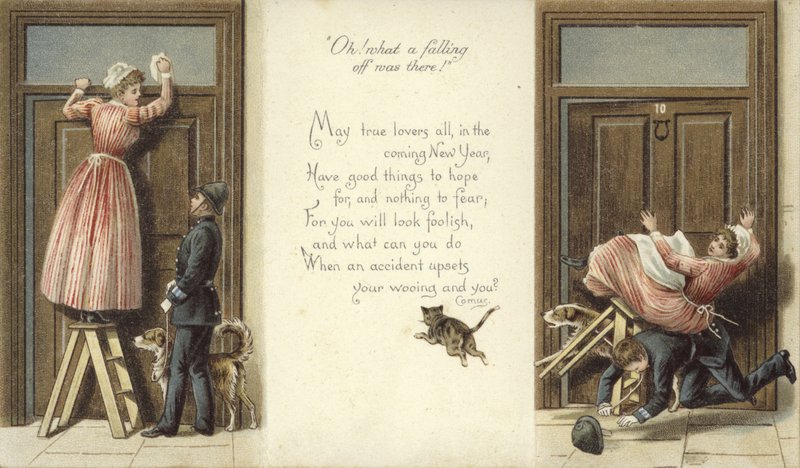 "Oh! what a falling
off was there!"
May true lovers all, in the
coming New Year,
Have good things to hope
for, and nothing to fear;
For you will look foolish,
and what can you do
When an accident upsets
your wooing and you?
Comus.
10